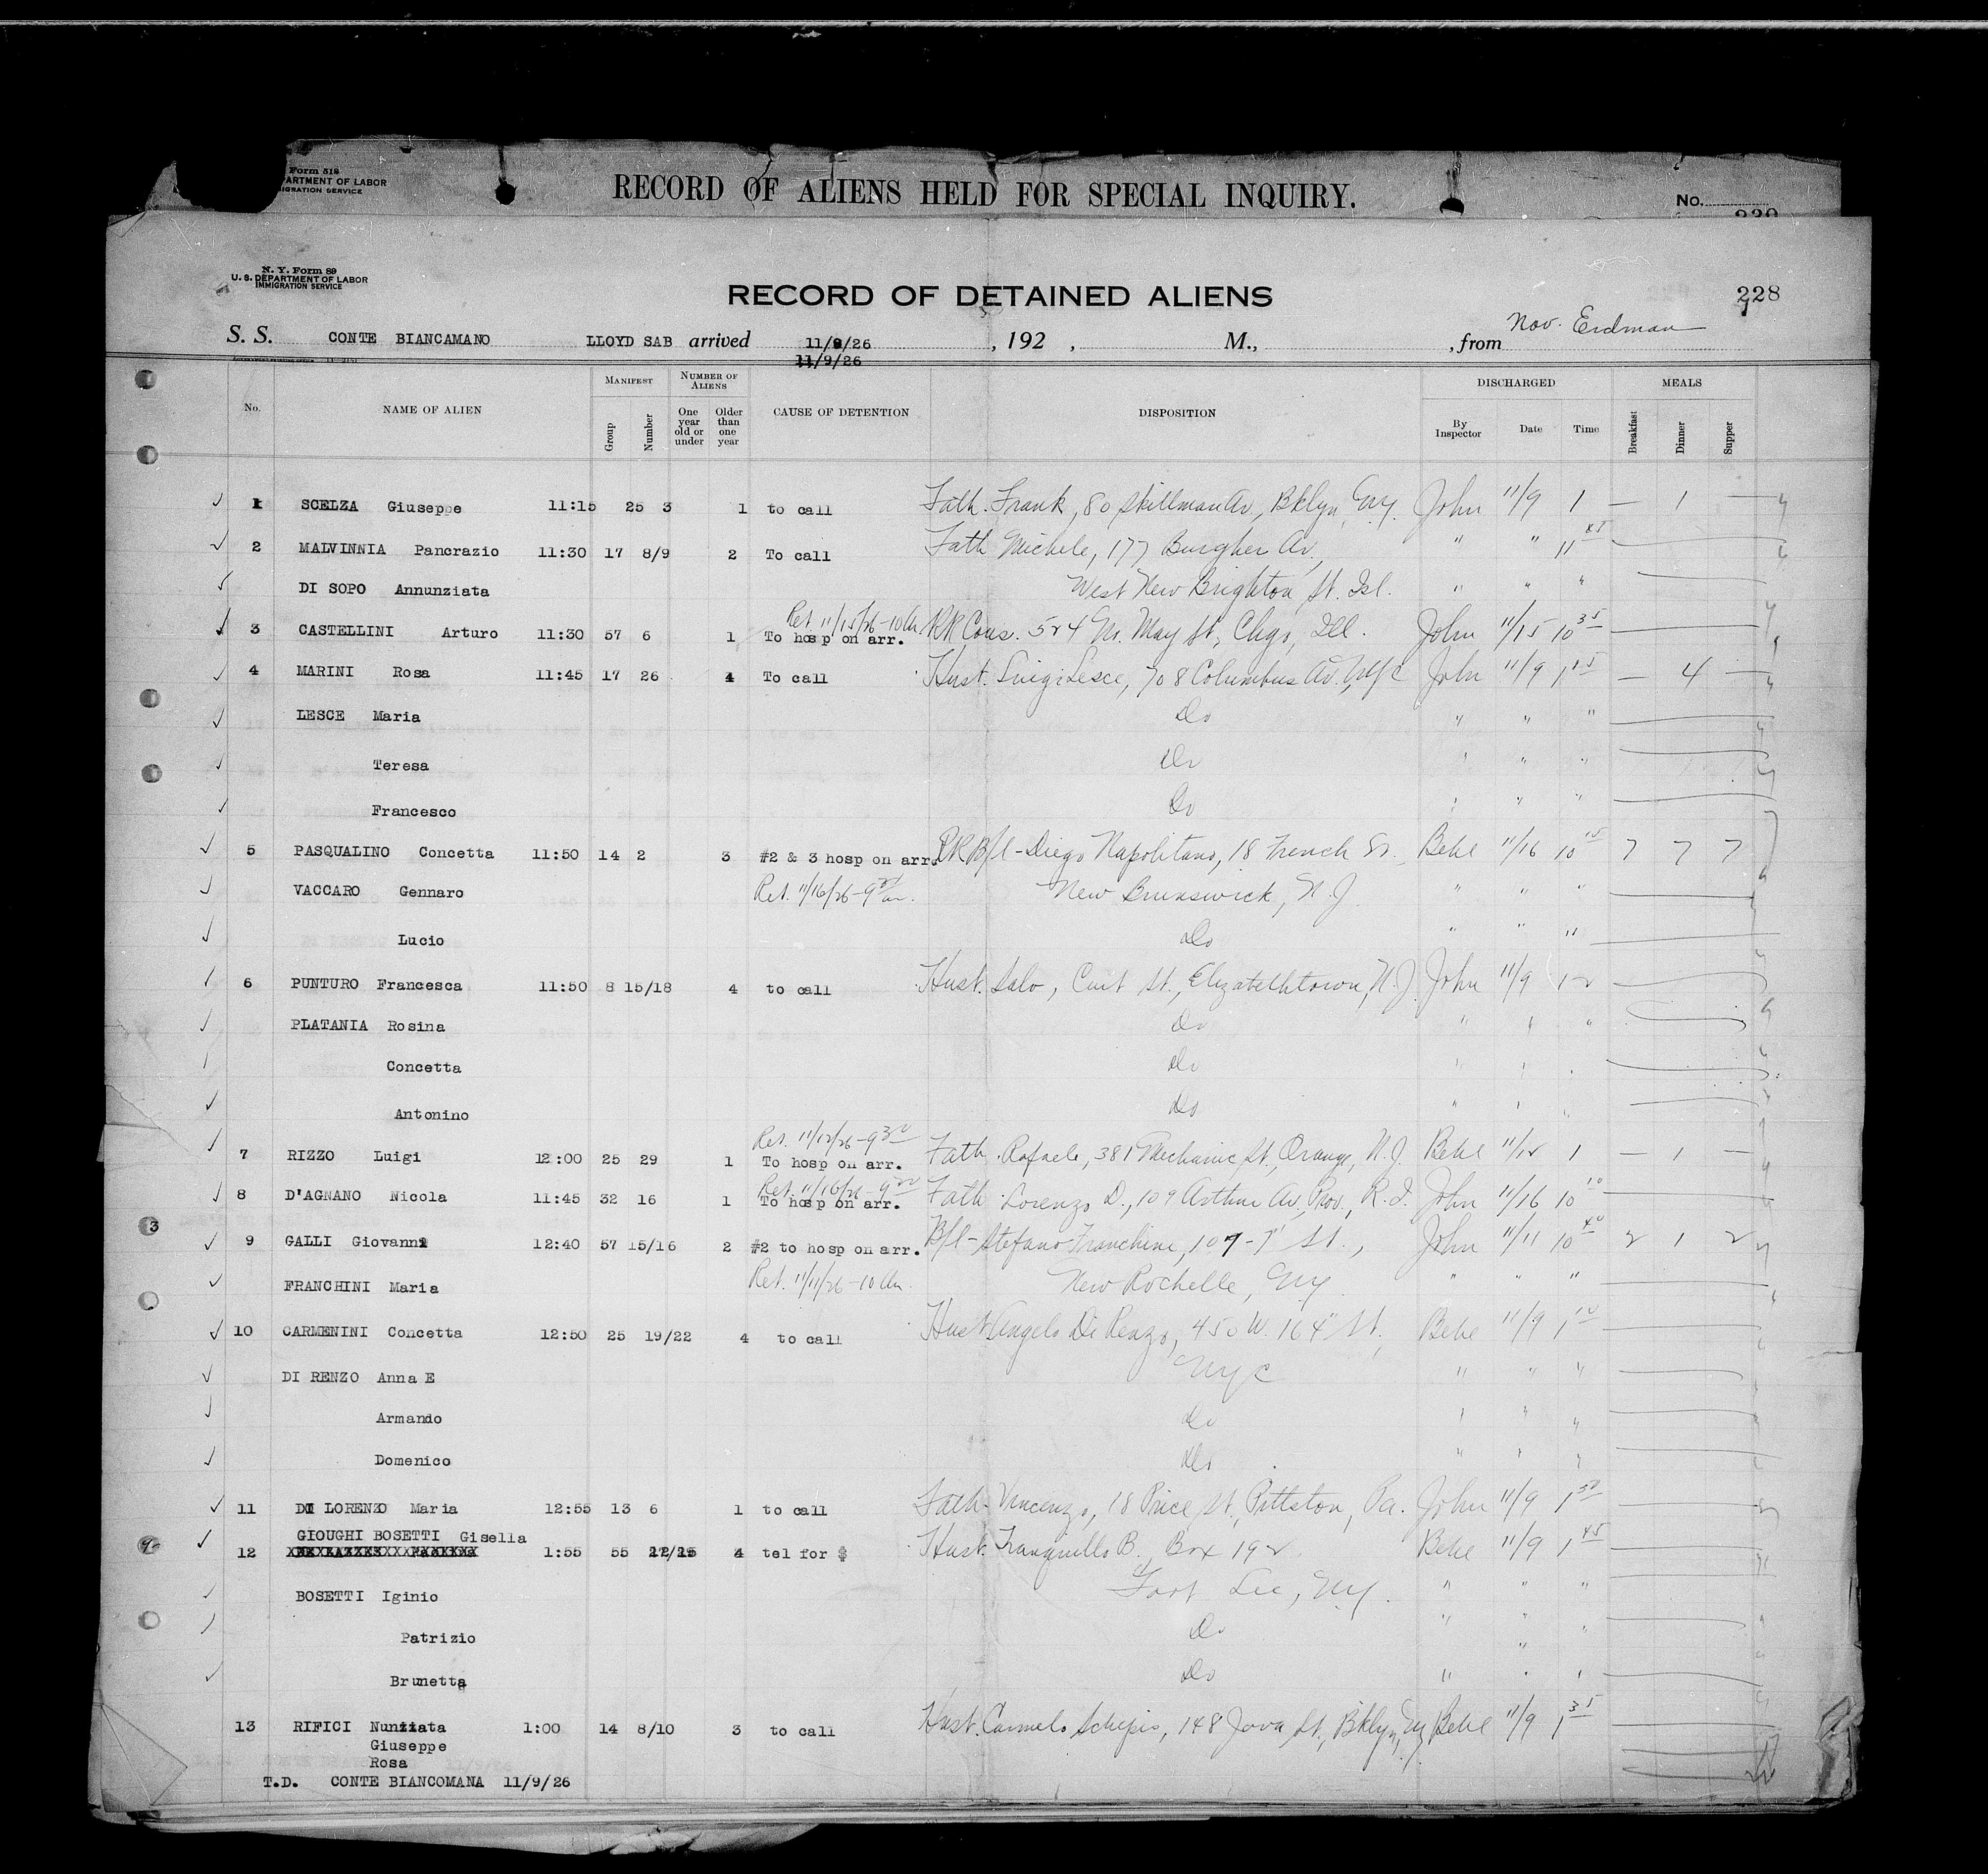 Form 518
PARTMENT OF LABOR
IGRATION SERVICE
RECORD OF ALIENS HELD FOR SPECIAL INQUIRY.
No.
N. Y. Form 89
U. S. DEPARTMENT OF LABOR
IMMIGRATION SERVICE
RECORD OF DETAINED ALIENS
228
S. S. CONTE BIANCAMANO LLOYD SAB arrived 11/9/26, 192 , M., , from Nov. Erdman
11/9/26
No. NAME OF ALIEN MANIFEST Group Number NUMBER OF ALIENS One year old or under Older than one year CAUSE OF DETENTION DISPOSITION DISCHARGED By Inspector Date Time MEALS Breakfast Dinner Supper
1 SCELZA Giuseppe 11:15 25 3 1 to call Fath. Frank, 80 Skillman Av., Bklyn, Ny. John 11/9 1 — 1 —
2 MALVINNIA Pancrazio 11:30 17 8/9 2 To call Fath Michele, 177 Burgher Av., " " 11 45
DI SOPO Annunziata West New Brighton, St. Isl. " " "
Ret. 11/15/26-10 Am
3 CASTELLINI Arturo 11:30 57 6 1 To hosp on arr. RR Cous. 524 No. May St., Chgo, Ill. John 11/15 10 35
4 MARINI Rosa 11:45 17 26 4 To call Hust. Luigi Lesce, 708 Columbus Av., NYC John 11/9 1 — 4 —
LESCE Maria Do " " "
Teresa Do " " "
Francesco Do " " "
5 PASQUALINO Concetta 11:50 14 2 3 #2 & 3 hosp on arr. RR B/l - Diego Napolitano, 18 French St. Behe 11/16 10 15 7 7 7
VACCARO Gennaro Ret. 11/16/26-9 New Brunswick, N.J. " " "
Lucio Do " " "
6 PUNTURO Francesca 11:50 8 15/18 4 to call Hust. Salo, St., Elizabethtown, N.J. John 11/9 12
PLATANIA Rosina Do " " "
Concetta Do " " "
Antonino Do " " "
Ret. 11/12/26-9 30
7 RIZZO Luigi 12:00 25 29 1 To hosp on arr. Fath. Rafaele, 381 Mechanic St., Orange, N.J. Behe 11/12 1 — 1 —
Ret. 11/16/26-9
8 D'AGNANO Nicola 11:45 32 16 1 To hosp on arr. Fath. Lorenzo D., 109 Arthur Av., Prov., R.I. John 11/16 10 10
9 GALLI Giovanni 12:40 57 15/16 2 #2 to hosp on arr. B/l - Stefano Franchini, 107-7" St., John 11/11 10 40 2 1 2
FRANCHINI Maria Ret. 11/11/26-10 Am. New Rochelle, Ny " " "
10 CARMENINI Concetta 12:50 25 19/22 4 to call Hust. Angelo Di Renzo, 450 W. 164" St., Behe 11/9 1 10
DI RENZO Anna E NYC " " "
Armando Do " " "
Domenico Do " " "
11 DI LORENZO Maria 12:55 13 6 1 to call Fath. Vincenzo, 18 Price St., Pittston, Pa. John 11/9 1 30
GIOUGHI BOSETTI Gisella
12 1:55 55 4 tel for $ Hust. Tranquillo B., Box 192 Behe 11/9 1 45
BOSETTI Iginio Fort Lee, Ny. " " "
Patrizio Do " " "
Brunetta Do " " "
13 RIFICI Nunziata 1:00 14 8/10 3 to call Hust. Carmelo Schepis, 148 Java St., Bklyn, Ny Behe 11/9 1 35
Giuseppe
Rosa
T.D. CONTE BIANCOMANA 11/9/26